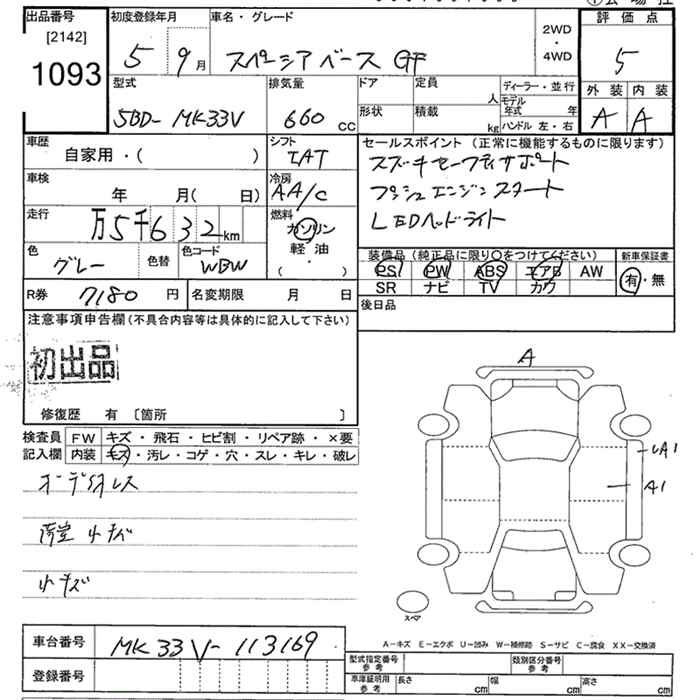 出品番号 初度登録年月 車名・グレード 2WD・4WD 評価点
[2142]
1093 5 9月 スペーシアベース GF 5
型式 排気量 ドア 定員 人 ディーラー・並行 外装 内装
5BD- MK33V 660 CC 形状 積載 kg モデル年式 年 A A
ハンドル 左・右
車歴 自家用・( ) シフト IAT セールスポイント (正常に機能するものに限ります)
スズキセーフティサポート
車検 年 月( 日) 冷房 AA/C プッシュエンジンスタート
走行 万5千632km 燃料 ガソリン 軽油・( ) LEDヘッドライト
色 グレー 色替 色コード WBW 装備品 (純正品に限り○をつけてください) 新車保証書
PS PW ABS エアB AW 有・無
R券 7180円 名変期限 月 日 SR ナビ TV カワ
注意事項申告欄(不具合内容等は具体的に記入して下さい) 後日品
初出品
修復歴 有 〔箇所 〕
A
検査員記入欄 FW キズ・飛石・ヒビ割・リペア跡・×要
内装 キズ・汚レ・コゲ・穴・スレ・キレ・破レ
A1
オーディオレス A1
荷室 小キズ
小キズ
スペア
車台番号 MK33V-113169
A-キズ E-エクボ U-凹み W-補修跡 S-サビ C-腐食 XX-交換済
登録番号 型式指定番号 参考 類別区分番号 参考
車庫証明用 参考 長さ cm 幅 cm 高さ cm